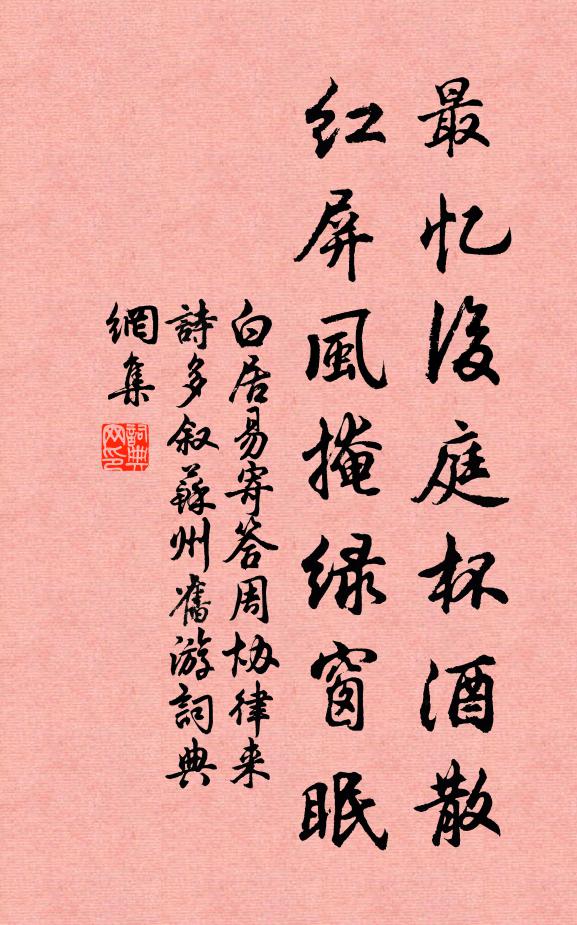 最忆後庭杯酒散
红屏風掩绿窗眠
白居易寄答周协律来
詩多叙蘇州舊游詞典
網集
詞典
网印